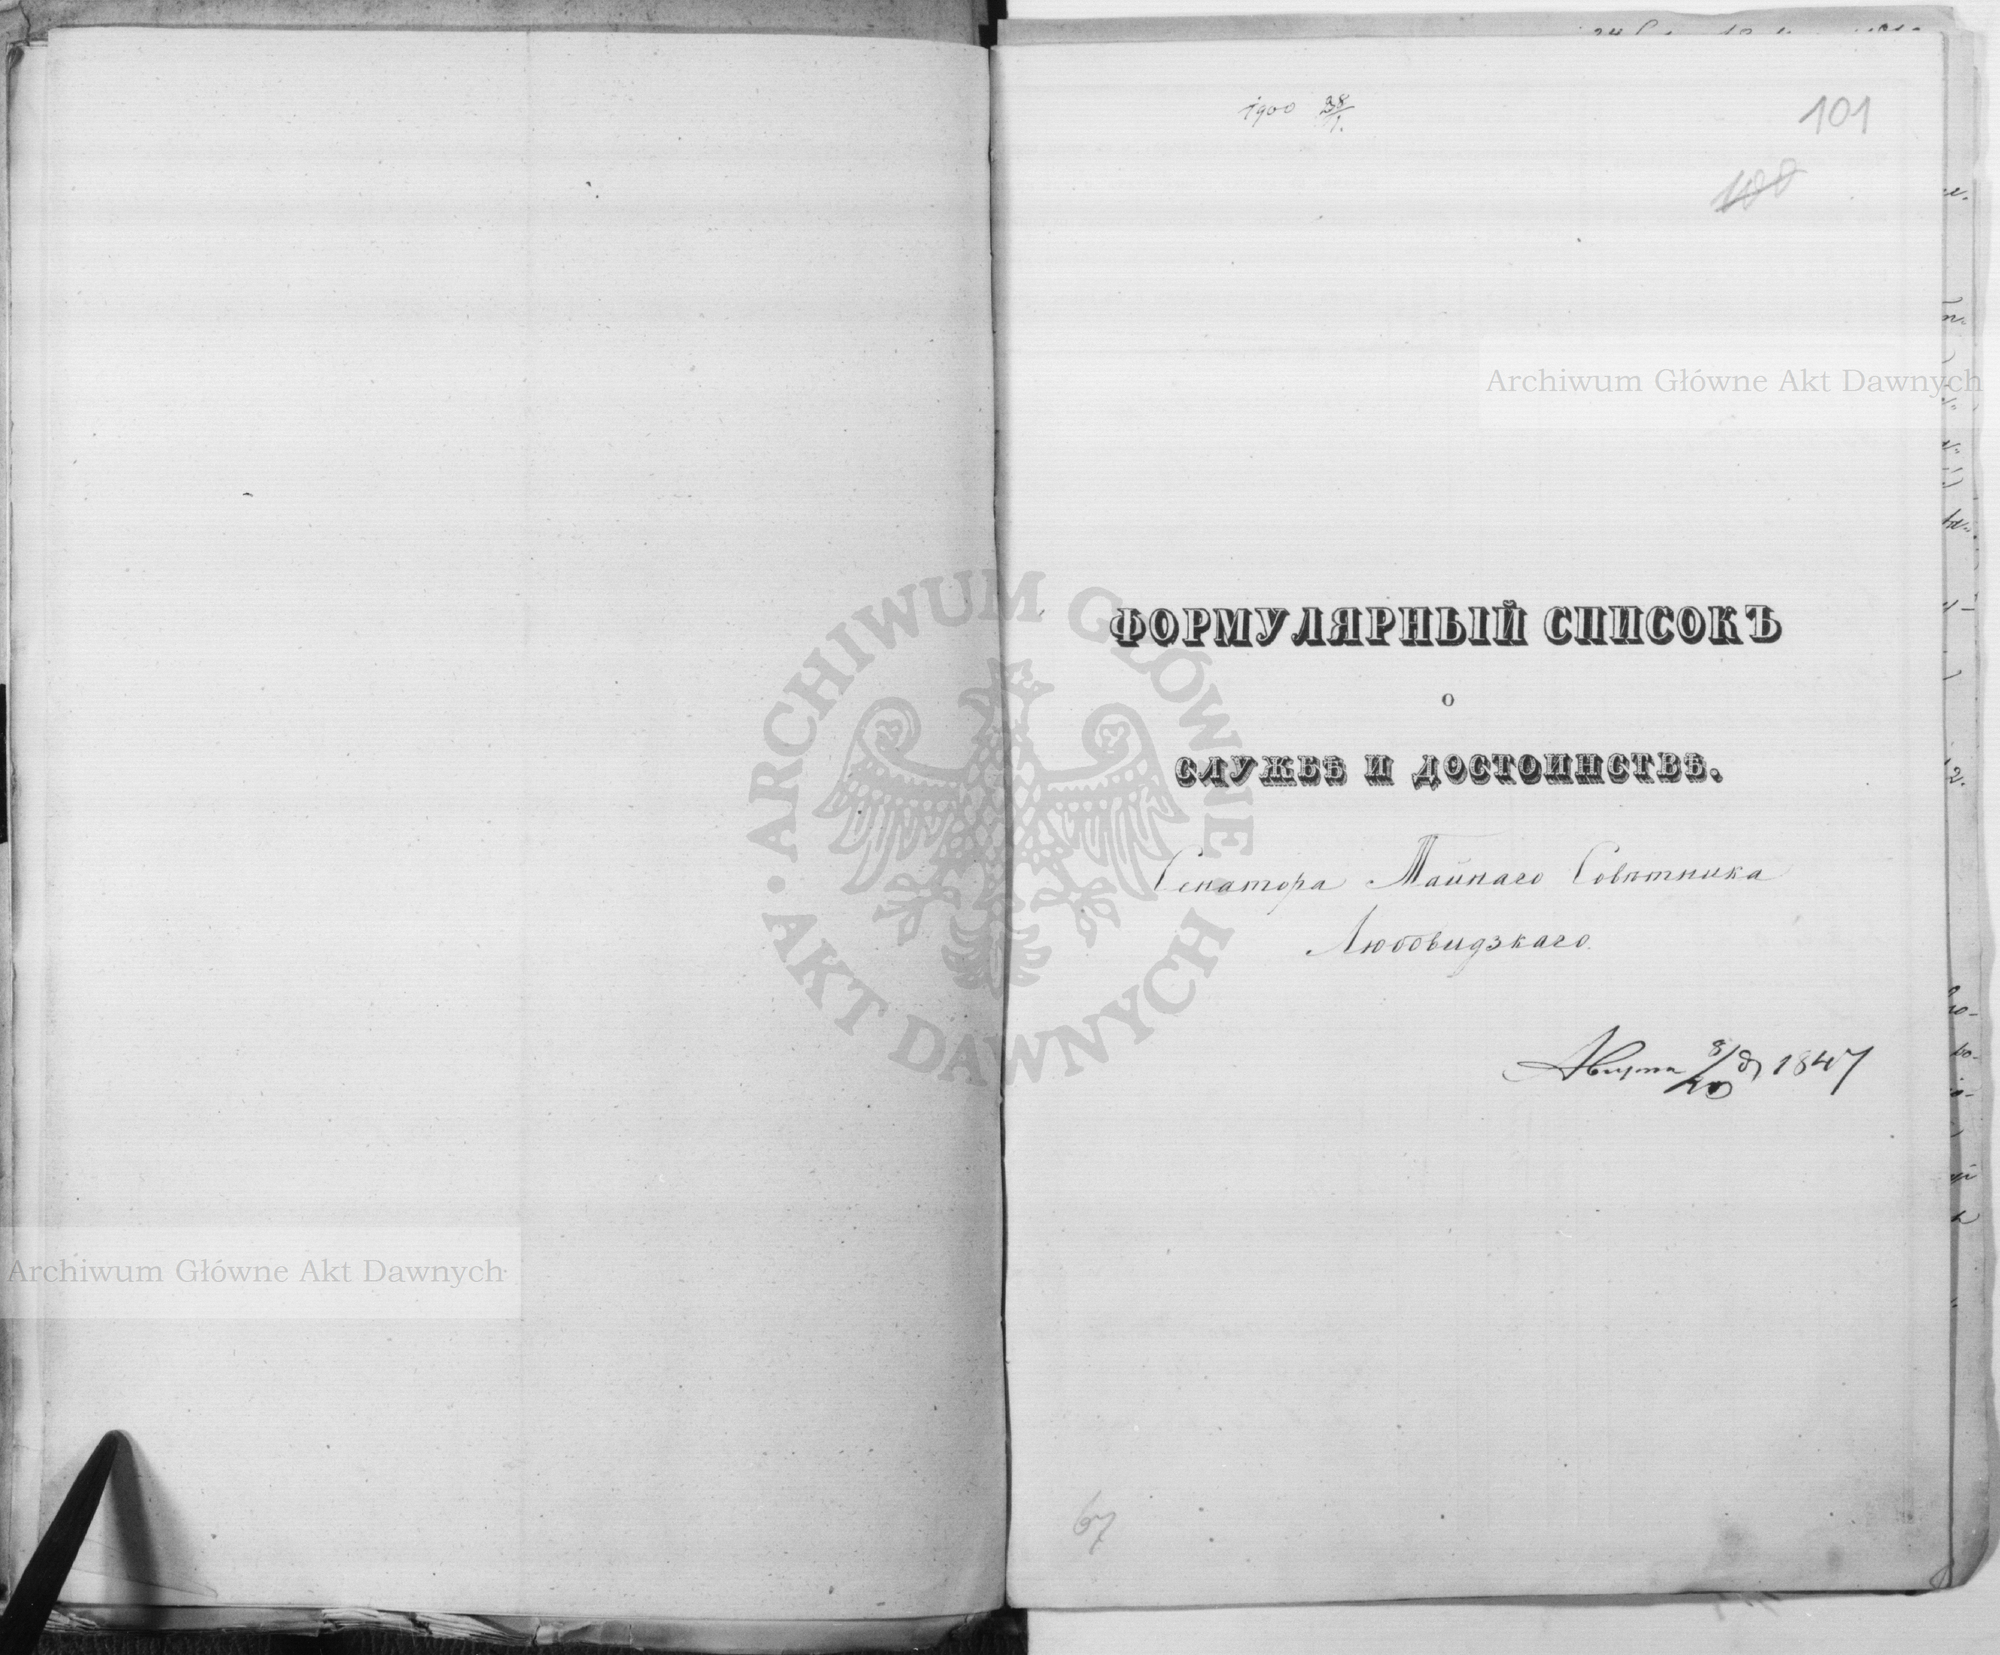 1900 28/11.
101
100
ФОРМУЛЯРНЫЙ СПИСОКЪ
О
СЛУЖБѢ И ДОСТОИНСТВѢ.
Сенатора Тайнаго Совѣтника
Любовидзкаго.
Августа 8/20 1847
67
Archiwum Główne Akt Dawnych
Archiwum Główne Akt Dawnych
ARCHIWUM GŁÓWNE AKT DAWNYCH